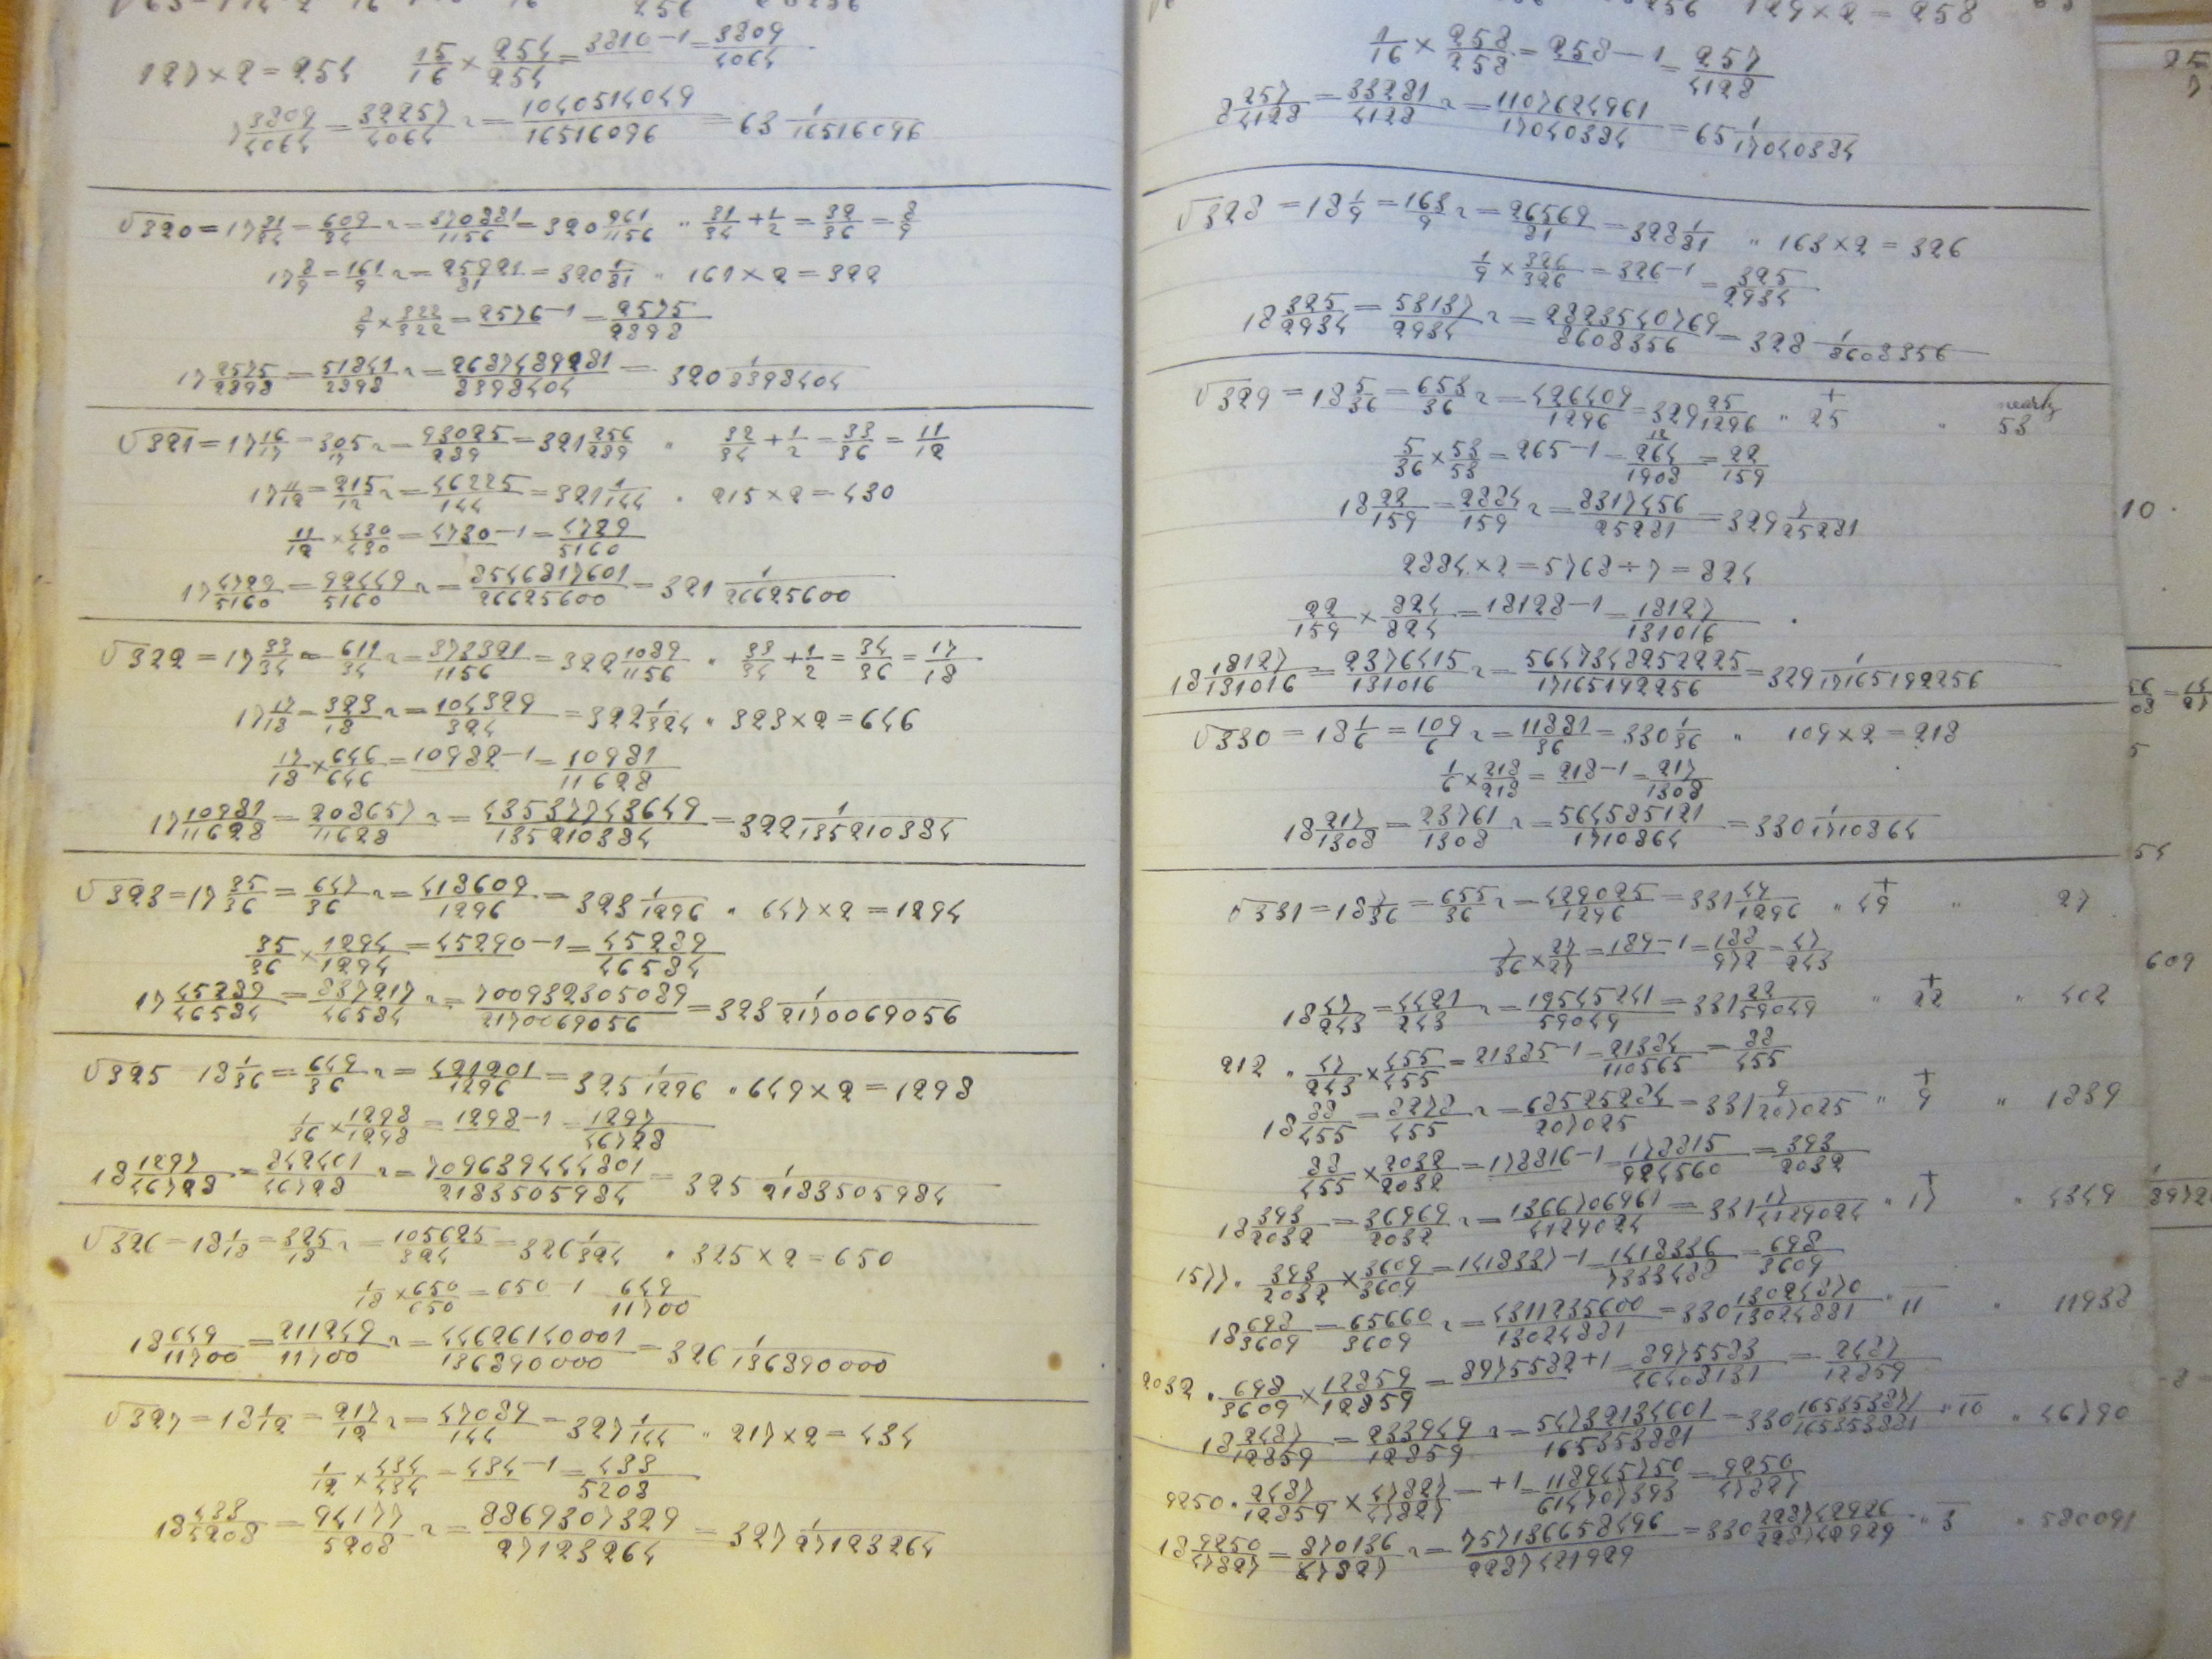 127 × 2 = 254   15/16 × 254/254 = 3810 − 1 = 3809/4064
7 3809/4064 = 32257/4064 ~ = 1040514049/16516096 = 63 1/16516096
√320 = 17 31/34 = 609/34 ~ = 370881/1156 = 320 961/1156 " 31/34 + 1/2 = 32/36 = 8/9
17 8/9 = 161/9 ~ = 25921/81 = 320 1/81 " 161 × 2 = 322
8/9 × 322/322 = 2576 − 1 = 2575/2898
17 2575/2898 = 51841/2898 ~ = 2687489281/8398404 = 320 1/8398404
√321 = 17 16/17 = 305/17 ~ = 93025/289 = 321 256/289 " 32/34 + 1/2 = 33/36 = 11/12
17 11/12 = 215/12 ~ = 46225/144 = 321 1/144 " 215 × 2 = 430
11/12 × 430/430 = 4730 − 1 = 4729/5160
17 4729/5160 = 92449/5160 ~ = 8546817601/26625600 = 321 1/26625600
√322 = 17 33/34 = 611/34 ~ = 373321/1156 = 322 1089/1156 " 33/34 + 1/2 = 34/36 = 17/18
17 17/18 = 323/18 ~ = 104329/324 = 322 1/324 " 323 × 2 = 646
17/18 × 646/646 = 10982 − 1 = 10981/11628
17 10981/11628 = 208657/11628 ~ = 43537743649/135210384 = 322 1/135210384
√323 = 17 35/36 = 647/36 ~ = 418609/1296 = 323 1/1296 " 647 × 2 = 1294
35/36 × 1294/1294 = 45290 − 1 = 45289/46584
17 45289/46584 = 837217/46584 ~ = 700932305089/2170069056 = 323 1/2170069056
√325 18 1/36 = 649/36 ~ = 421201/1296 = 325 1/1296 " 649 × 2 = 1298
1/36 × 1298/1298 = 1298 − 1 = 1297/46728
18 1297/46728 = 842401/46728 ~ = 709639444801/2183505984 = 325 1/2183505984
√326 = 18 1/18 = 325/18 ~ = 105625/324 = 326 1/324 " 325 × 2 = 650
1/18 × 650/650 = 650 − 1 649/11700
18 649/11700 = 211249/11700 ~ = 44626140001/136890000 = 326 1/136890000
√327 = 18 1/12 = 217/12 ~ = 47089/144 = 327 1/144 " 217 × 2 = 434
1/12 × 434/434 = 434 − 1 = 433/5208
18 433/5208 = 94177/5208 ~ = 8869307329/27123264 = 327 1/27123264
129 × 2 = 258
1/16 × 258/258 = 258 − 1 = 257/4128
8 257/4128 = 33281/4128 ~ = 1107624961/17040384 = 65 1/17040384
√328 = 18 1/9 = 163/9 ~ = 26569/81 = 328 1/81 " 163 × 2 = 326
1/9 × 326/326 = 326 − 1 = 325/2934
18 325/2934 = 53137/2934 ~ = 2823540769/8608356 = 328 1/8608356
√329 = 18 5/36 = 653/36 ~ = 426409/1296 = 329 25/1296 " +25 " nearly 53
5/36 × 53/53 = 265 − 1 = 264/1908 = 22/159
18 22/159 = 2884/159 ~ = 8317456/25281 = 329 7/25281
2884 × 2 = 5768 ÷ 7 = 824
22/159 × 824/824 = 18128 − 1 = 18127/131016
18 18127/131016 = 2376415/131016 ~ = 5647348252225/17165192256 = 329 1/17165192256
√330 = 18 1/6 = 109/6 ~ = 11881/36 = 330 1/36 " 109 × 2 = 218
1/6 × 218/218 = 218 − 1 = 217/1308
18 217/1308 = 23761/1308 ~ = 564585121/1710864 = 330 1/1710864
√331 = 18 7/36 = 655/36 ~ = 429025/1296 = 331 49/1296 " +49 " 27
7/36 × 27/27 = 189 − 1 = 188/972 = 47/243
18 47/243 = 4421/243 ~ = 19545241/59049 = 331 22/59049 " +22 " 402
212 " 47/243 × 455/455 = 21385 − 1 = 21384/110565 = 88/455
18 88/455 = 8278/455 ~ = 68525284/207025 = 331 9/207025 " +9 " 1839
88/455 × 2032/2032 = 178816 − 1 = 178815/924560 = 393/2032
18 393/2032 = 36969/2032 ~ = 1366706961/4129024 = 331 17/4129024 " +17 " 4349
1577 " 393/2032 × 3609/3609 = 1418337 − 1 = 1418336/7333488 = 698/3609
18 698/3609 = 65660/3609 ~ = 4311235600/13024881 = 330 13024870/13024881 " 11 " 11938
2032 " 698/3609 × 12859/12859 = 8975582 + 1 = 8975583/46408131 = 2487/12859
18 2487/12859 = 233949/12859 ~ = 54732134601/165353881 = 330 165353871/165353881 " 10 " 46790
9250 " 2487/12859 × 47827/47827 = + 1 = 118945750/614707393 = 9250/47827
18 9250/47827 = 870136/47827 ~ = 757136658496/2287421929 = 330 " 3 " 580091
10
609